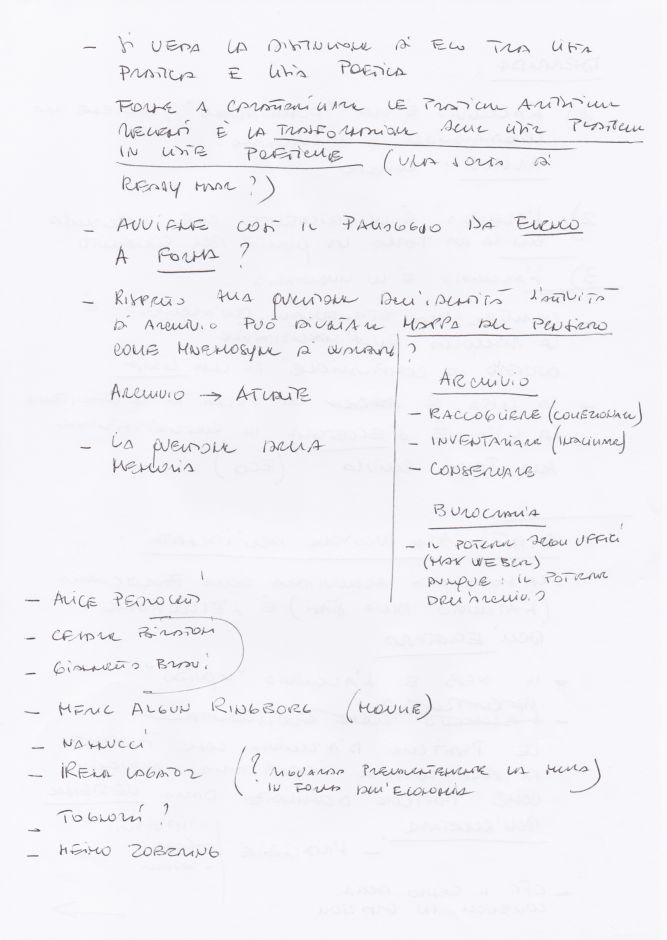 - Si veda la distinzione di Eco tra lista
pratica e lista poetica
Forse a caratterizzare le pratiche artistiche
recenti è la trasformazione delle liste pratiche
in liste poetiche (una sorta di
ready made?)
- Avviene così il passaggio da elenco
a forma?
- Rispetto alla questione dell'identità l'attività
di archivio può diventare mappa del pensiero
come Mnemosyne di Warburg?
Archivio → Atlante
- La questione della
memoria
Archivio
- raccogliere (collezionare)
- inventariare (
- conservare
Burocrazia
- il potere degli uffici
(Max Weber)
dunque: il potere
dell'archivio?
- Alice Pedroletti
- Cesare Pietroiusti
- Giannetto Bravi
- Meriç Algün Ringborg (
- Nannucci
- Irena Lagator (? riguarda prevalentemente la
in forma dell'economia
-
- Heimo Zobernig